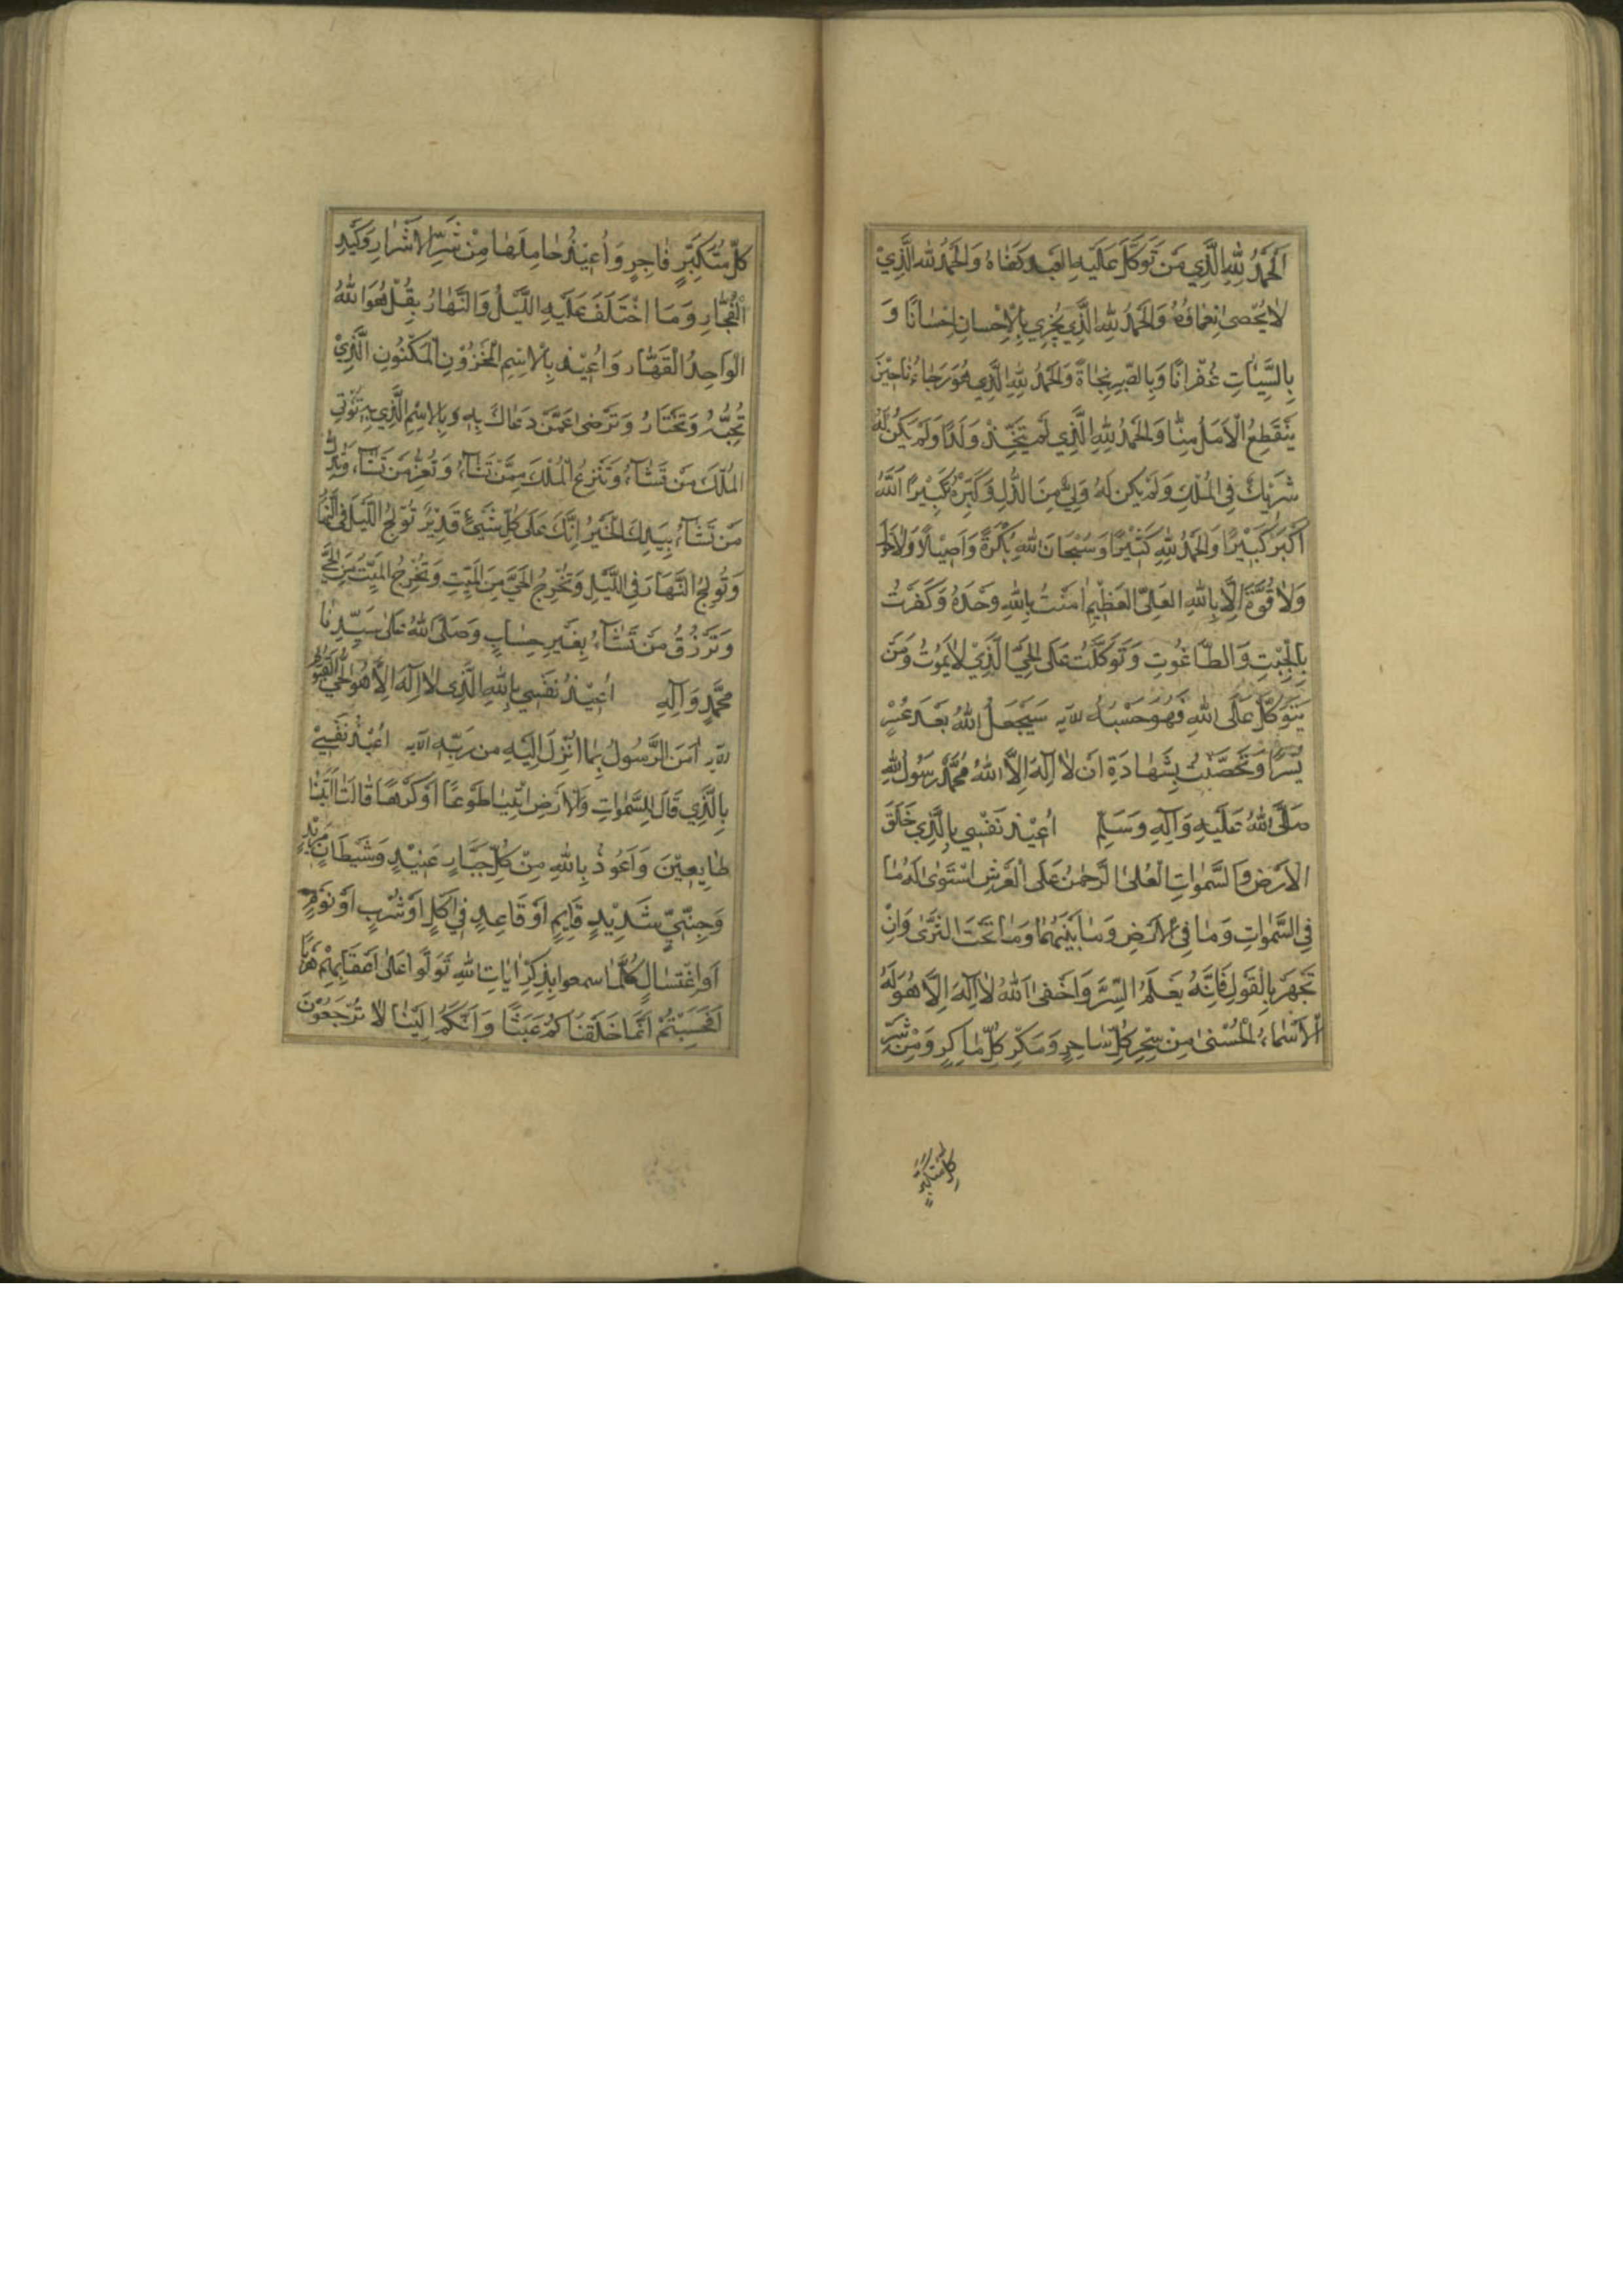 اَلْحَمْدُ لِلّٰهِ الَّذِي مَنْ تَوَكَّلَ عَلَيْهِ العَبْدُ كَفَاهُ وَالْحَمْدُ لِلّٰهِ الَّذِيْ
لَا يُحْصىٰ نِعْمَاؤُهُ وَالْحَمْدُ لِلّٰهِ الَّذِي يَجْزِي بِالْاِحْسَانِ اِحْسَانًا وَ
بِالسَّيِّئَاتِ غُفْرَانًا وَبِالصَّبْرِ نَجَاةً وَالْحَمْدُ لِلّٰهِ الَّذِي هُوَ رَجَاءُنَا حِيْنَ
يَنْقَطِعُ الْاَمَلُ مِنَّا وَالْحَمْدُ لِلّٰهِ الَّذِي لَمْ يَتَّخِذْ وَلَدًا وَلَمْ يَكُنْ لَهُ
شَرِيْكٌ فِي الْمُلْكِ وَلَمْ يَكُنْ لَهُ وَلِيٌّ مِنَ الذُّلِّ وَكَبِّرْهُ تَكْبِيْرًا اَللّٰهُ
اَكْبَرُ كَبِيْرًا وَالْحَمْدُ لِلّٰهِ كَثِيْرًا وَسُبْحَانَ اللّٰهِ بُكْرَةً وَاَصِيْلًا وَلَا حَوْلَ
وَلَا قُوَّةَ اِلَّا بِاللّٰهِ العَلِيِّ العَظِيْمِ اٰمَنْتُ بِاللّٰهِ وَحْدَهُ وَكَفَرْتُ
بِالْجِبْتِ وَالطَّاغُوتِ وَتَوَكَّلْتُ عَلَى الْحَيِّ الَّذِيْ لَا يَمُوتُ وَمَنْ
يَتَوَكَّلْ عَلَى اللّٰهِ فَهُوَ حَسْبُهُ الآيه سَيَجْعَلُ اللّٰهُ بَعْدَ عُسْرٍ
يُسْرًا وَتَحَصَّنْتُ بِشَهَادَةِ اَنْ لَا اِلٰهَ اِلَّا اللّٰهُ مُحَمَّدٌ رَسُولُ اللّٰهِ
صَلَّى اللّٰهُ عَلَيْهِ وَآلِهِ وَسَلَّمَ اُعِيْذُ نَفْسِي بِالَّذِي خَلَقَ
الْاَرْضَ وَالسَّمٰوَاتِ الْعُلىٰ الرَّحْمٰنُ عَلَى الْعَرْشِ اسْتَوىٰ لَهُ مَا
فِي السَّمٰوَاتِ وَمَا فِي الْاَرْضِ وَمَا بَيْنَهُمَا وَمَا تَحْتَ الثَّرىٰ وَاِنْ
تَجْهَرْ بِالْقَوْلِ فَاِنَّهُ يَعْلَمُ السِّرَّ وَاَخْفىٰ اَللّٰهُ لَا اِلٰهَ اِلَّا هُوَ لَهُ
الْاَسْمَاءُ الْحُسْنىٰ مِنْ سِحْرِ كُلِّ سَاحِرٍ وَمَكْرِ كُلِّ مَاكِرٍ وَمِنْ شَرِّ
كُلِّ مُتَكَبِّرٍ
كُلِّ مُتَكَبِّرٍ فَاجِرٍ وَاُعِيْذُ حَامِلَهَا مِنْ شَرِّ الْاَشْرَارِ وَكَيْدِ
الْفُجَّارِ وَمَا اخْتَلَفَ عَلَيْهِ اللَّيْلُ وَالنَّهَارُ بِقُلْ هُوَ اللّٰهُ
الْوَاحِدُ الْقَهَّار وَاُعِيْذُ بِالْاِسْمِ الْمَخْزُوْنِ الْمَكْنُونِ الَّذِيْ
تُحِبُّهُ وَتَخْتَارُ وَتَرْضىٰ عَمَّنْ دَعَاكَ بِهِ وَبِالْاِسْمِ الَّذِي بِهِ تُؤْتِي
الْمُلْكَ مَنْ تَشَآءُ وَتَنْزِعُ الْمُلْكَ مِمَّنْ تَشَآءُ وَتُعِزُّ مَنْ تَشَآءُ وَتُذِلُّ
مَنْ تَشَآءُ بِيَدِكَ الْخَيْرُ اِنَّكَ عَلَى كُلِّ شَيْئٍ قَدِيْرٌ تُوْلِجُ اللَّيْلَ فِي النَّهَارِ
وَتُولِجُ النَّهَارَ فِي اللَّيْلِ وَتُخْرِجُ الْحَيَّ مِنَ الْمَيِّتِ وَتُخْرِجُ الْمَيِّتَ مِنَ الْحَيِّ
وَتَرْزُقُ مَنْ تَشَآءُ بِغَيْرِ حِسَابٍ وَصَلَّى اللّٰهُ عَلىٰ سَيِّدِنَا
مُحَمَّدٍ وَآلِهِ اُعِيْذُ نَفْسِي بِاللّٰهِ الَّذِي لَا اِلٰهَ اِلَّا هُوَ الْحَيُّ الْقَيُّوْمُ
الآيه اٰمَنَ الرَّسُولُ بِمَا اُنْزِلَ اِلَيْهِ مِن رَبِّهِ الآيه اُعِيْذُ نَفْسِيْ
بِالَّذِي قَالَ لِلسَّمٰوَاتِ وَالْاَرْضِ ائْتِيَا طَوْعًا اَوْ كَرْهًا قَالَتَا اَتَيْنَا
طَايِعِيْنَ وَاَعُوذُ بِاللّٰهِ مِنْ كُلِّ جَبَّارٍ عَنِيْدٍ وَشَيْطَانٍ مَرِيْدٍ
وَجِنِّيٍّ شَدِيْدٍ قَايِمٍ اَوْ قَاعِدٍ فِي اَكْلٍ اَوْ شُرْبٍ اَوْ نَوْمٍ
اَوِ اغْتِسَالٍ كُلَّمَا سمعوا بِذِكْرِ اٰيَاتِ اللّٰهِ تَوَلَّوا عَلىٰ اَعْقَابِهِمْ هَرَبًا
اَفَحَسِبْتُمْ اَنَّمَا خَلَقْنَاكُمْ عَبَثًا وَاَنَّكُمْ اِلَيْنَا لَا تُرْجَعُوْنَ